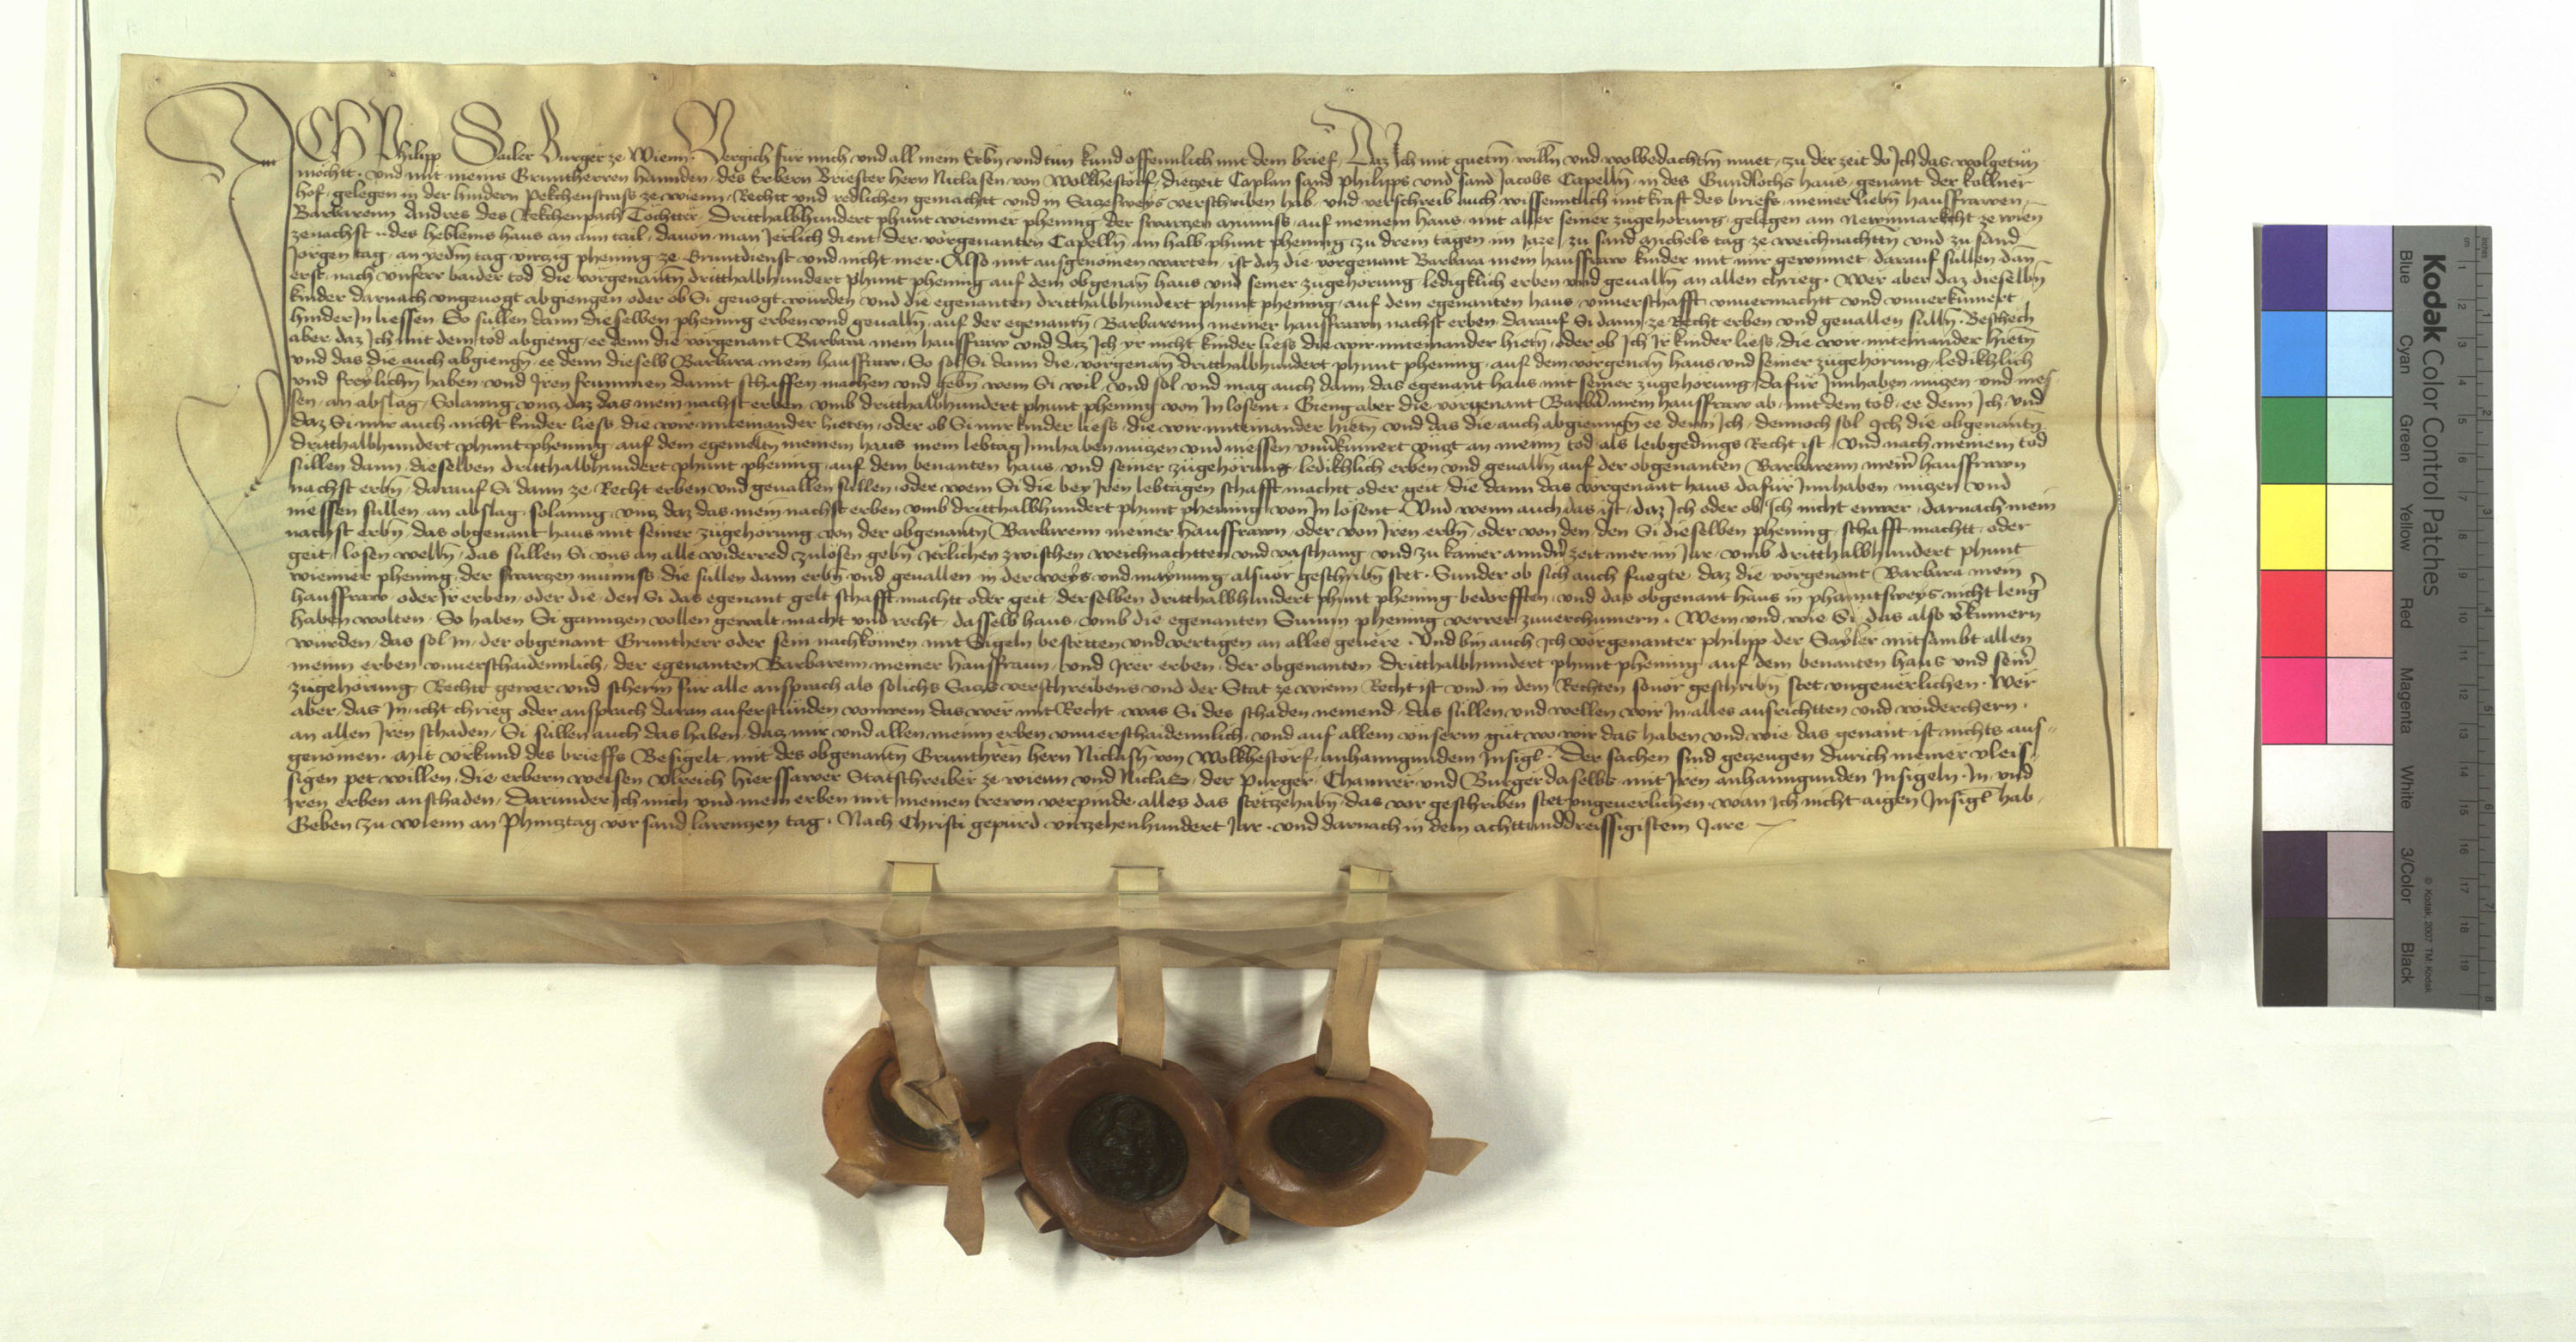 ICH Philipp Sailer Burger ze Wienn. Vergich für mich und all mein Erbn̄ und tun kund offennlich mit dem brief, Daz Ich mit guetm̄ willn̄ und wolbedachtm̄ muet, zu der zeit do Ich das wolgetůn
mocht. und mit meins Gruntherren hannden, des Erbern Briester hern Niclasen von Wolkhestorf, dieczeit Caplan sand Philipps und sand Jacobs Capelln̄, in des Gundlochs haus, genant der kollner
hof, gelegen in der hindern Pekchenstrass ze wienn, Rechtt und redlichen gemachtt und in Saczesweys verschriben hab, und verschreib auch wissenntlich mit kraft des briefs, meiner liebn̄ hausfrawen,
Barbarenn Andres des Rekchenpach Tochtter, Dritthalbhundert phunt wienner phening, der swarczen můnnss, auf meinem haus, mit aller seiner zugehorung, gelegen am Newnmarkcht ze wien
zenachst des heblems haus an aim tail, davon man Jerlich dient, der vorgenanten Capelln̄, ain halb phunt phening, zu drein tagen im Jare, zu sand Michels tag ze weichnachttn̄ und zu sand
Jorgen tag, an yedm̄ tag virczig phening ze Gruntdienst und nicht mer. Also mit ausgenomen warten, ist daz die vorgenant Barbara mein hausfraw kinder mit mir gewinnet, darauf sullen dan
erst, nach unserr baider tod, die vorgenantn̄ dritthalbhundert phunt phening auf dem obgenan̄ haus und seiner zugehorung, ledigklich erben und gevalln̄ an allen chrieg. Wer aber daz dieselbn̄
kinder darnach ungevogt abgiengen oder ob Si gevogt wurden und die egenanten dritthalbhundert phunt phening, auf dem egenanten haus, unverschafft unvermachtt und unverkumert
hinder In liessen. So sullen dann dieselben phening erben und gevalln̄, auf der egenantn̄ Barbarenn meiner hausfrawn nachst erben, darauf Si dann ze Recht erben und gevallen sulln̄. Beschech
aber daz Ich mit dem tod abgieng, ee denn die vorgenant Barbara mein hausfraw und daz Ich yr nicht kinder liess die wir miteinander hietn̄, oder ob Ich Ir kinder liess, die wir miteinander hietn̄
und das die auch abgiengn̄, ee denn dieselb Barbara mein hausfraw. So sol Si dann die vorgenan̄ dritthalbhundert phunt phening, auf dem vorgenan̄ haus und seiner zugehorung, ledikhlich
und freylichn̄ haben, und Iren frummen damit schaffen machen und gebn̄ wem Si wil, und sol und mag auch dann das egenant haus mit seiner zugehorung, dafur Innhaben nuczen und nies
sen, an abslag, Solanng uncz daz das mein nachst erben, umb dritthalbhundert phunt phening von In losent. Gieng aber die vorgenant Barbara mein hausfraw ab, mit dem tod, ee denn Ich, und
daz Si mir auch nicht kinder liess, die wir miteinander hieten, oder ob Si mir kinder liess, die wir miteinander hietn̄ und das die auch abgienngn̄ ee denn Ich, dennoch sol Ich die obgenantn̄
dritthalbhundert phunt phening, auf dem egemeltn̄ meinem haus mein lebtag Innhaben nuczen und niessen unverkumert uncz an meinn tod, als leibgedings Recht ist, und nach meinem tod
sullen dann, dieselben dritthalbhundert phunt phening, auf dem benanten haus, und seiner zugehorung, ledikhlich erben und gevalln̄ auf der obgenanten Barbarenn meiner hausfrawn
nachst erbn̄, darauf Si dann ze Recht erben und gevallen sullen, oder wem Si die bey Iren lebtagen schafft machtt oder geit, die dann das vorgenant haus dafur Innhaben nuczen und
niessen sullen, an abslag, solanng, uncz daz das mein nachst erben umb dritthalbhundert phunt phening von In losent. Und wenn auch das ist, daz Ich oder ob Ich nicht enwer, darnach mein
nachst erbn̄, das obgenant haus mit seiner zugehorung von der obgenantn̄ Barbarenn meiner hausfrawn, oder von Iren erbn̄, oder von den, den Si dieselben phening, schafft machtt, oder
geit, losen welln̄, das sullen Si uns an alle widerred zulosen gebn̄ Jerlichen zwischen weichnachtten und vaschang, und zu kainer anndn̄ zeit mer im Jar, umb dritthalbhundert phunt
wienner phening, der swarczen můnnss, die sullen dann erbn̄ und gevallen in der weys und maynung alsuor geschribn̄ stet. Sunder ob sich auch fuegte, daz die vorgenant Barbara mein
hausfraw, oder Ir erben, oder die, den Si das egenant gelt schafft machtt oder geit, derselben dritthalbhundert phunt phening bedorfften, und das obgenant haus in phanntsweys nicht leng̃
haben wolten, So haben Si ganntzen vollen gewalt macht und recht, dasselb haus, umb die egenanten Summ phening verrer zuverchumern. Wem und wie Si das also verkumern
wurden, das sol In, der obgenant Gruntherr oder sein nachkomen, mit Sigeln bestetten und vertigen an alles gevere. Und bin auch Ich vorgenanter philipp der Sayler mitsambt allen
meinn erben unverschaidennlich, der egenanten Barbarenn meiner hausfraun, und Irer erben, der obgenanten dritthalbhundert phunt phening auf dem benanten haus und seinr̄
zugehorung, Rechtt gewer und scherm fur alle ansprach als solichs Sacz verschreibens und der Stat ze wienn Recht ist und in dem Rechten souor geschribn̄ stet ungeuerlichen. Wer
aber, das In icht chrieg oder ansprach daran auferstunden vonwem das wer mit Recht, was Si des schaden nemend, das sullen und wellen wir In alles ausrichtten und widerchern,
an allen Iren schaden, Si sullen auch das haben, daz mir und allen meinn erben unverschaidennlich, und auf allem unserm gut wo wir das haben und wie das genant ist nichts aus-
genomen. Mit urkund des brieffs Besigelt, mit des obgenantn̄ Grunthern̄ hern Niclasn̄ von Wolkhestorf, anhanngundem Insigl. Der sachen sind geczeugen durich meiner vleis
sigen pet willen, die erbern weisen Ulreich hierssawer Statschreiber ze wienn und Niclas, der Purger, Chamrer und Burger daselbs mit Iren anhanngunden Insigeln, In und
Iren erben anschaden, Darunder Ich mich und mein erben mit meinen trewn verpinde, alles das stetzehabn̄, das vor geschriben stet ungeuerlichen, wan Ich nicht aigen Insigl hab,
Geben zu wienn an Phincztag vor sand larenczen tag. Nach Christi gepurd virczehenhundert Jar, und darnach in dem achttunddreissigistem Jare
Kodak Color Control Patches
Blue Cyan Green Yellow Red Magenta White 3/Color Black
© Kodak, 2007 TM: Kodak
cm 1 2 3 4 5 6 7 8 9 10 11 12 13 14 15 16 17 18 19
inches 1 2 3 4 5 6 7 8